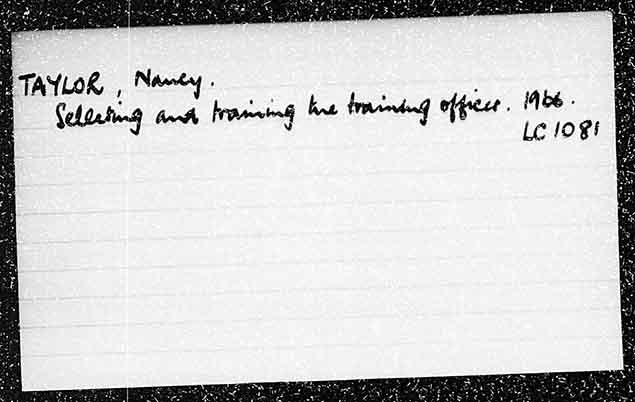 TAYLOR, Nancy.
Selecting and training the training officer. 1966.
LC 1081